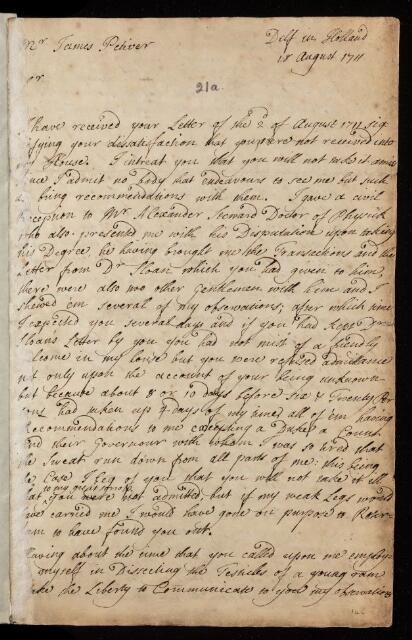 Mr James Petiver
Delf in Holland
18 August 1711
Sr
21a
I have received your Letter of the 2d of August 1711 sig-
nifying your dissatisfaction that you were not received into
my House. I intreat you that you will not take it amiss
since I admit no body that endeavours to see me but such
as bring recommendations with them. I gave a civil
reception to Mr Alexander Steward Doctor of Physick
who also presented me with his Disputation upon taking
his Degree, he having brought me the Transactions and the
Letter from Dr Sloan which you had given to him,
there were also two other Gentlemen with him and I
shewed em several of my observations; after which time
I expected you several days and if you had kept Doctor
Sloans Letter by you you had not mist of a friendly
welcome in my house but you were refused admittance
not only upon the account of your being unknown
but because about 8 or 10 days before Six & Twenty Per-
sons had taken up 4 days of my time, all of em having
Recommendations to me excepting a Duke, a Count
and their Governour with whom I was so tired that
the Sweat run down from all parts of me: this being
the Case I beg of you that you will not take it ill
that you were not admitted
to my
but if my weak Legs would
have carried me I would have gone on purpose to Roter-
dam to have found you out.
Having about the time that you called upon me employ'd
myself in Dissecting the Testicles of a young ram
I take the Liberty to Communicate to you my observations